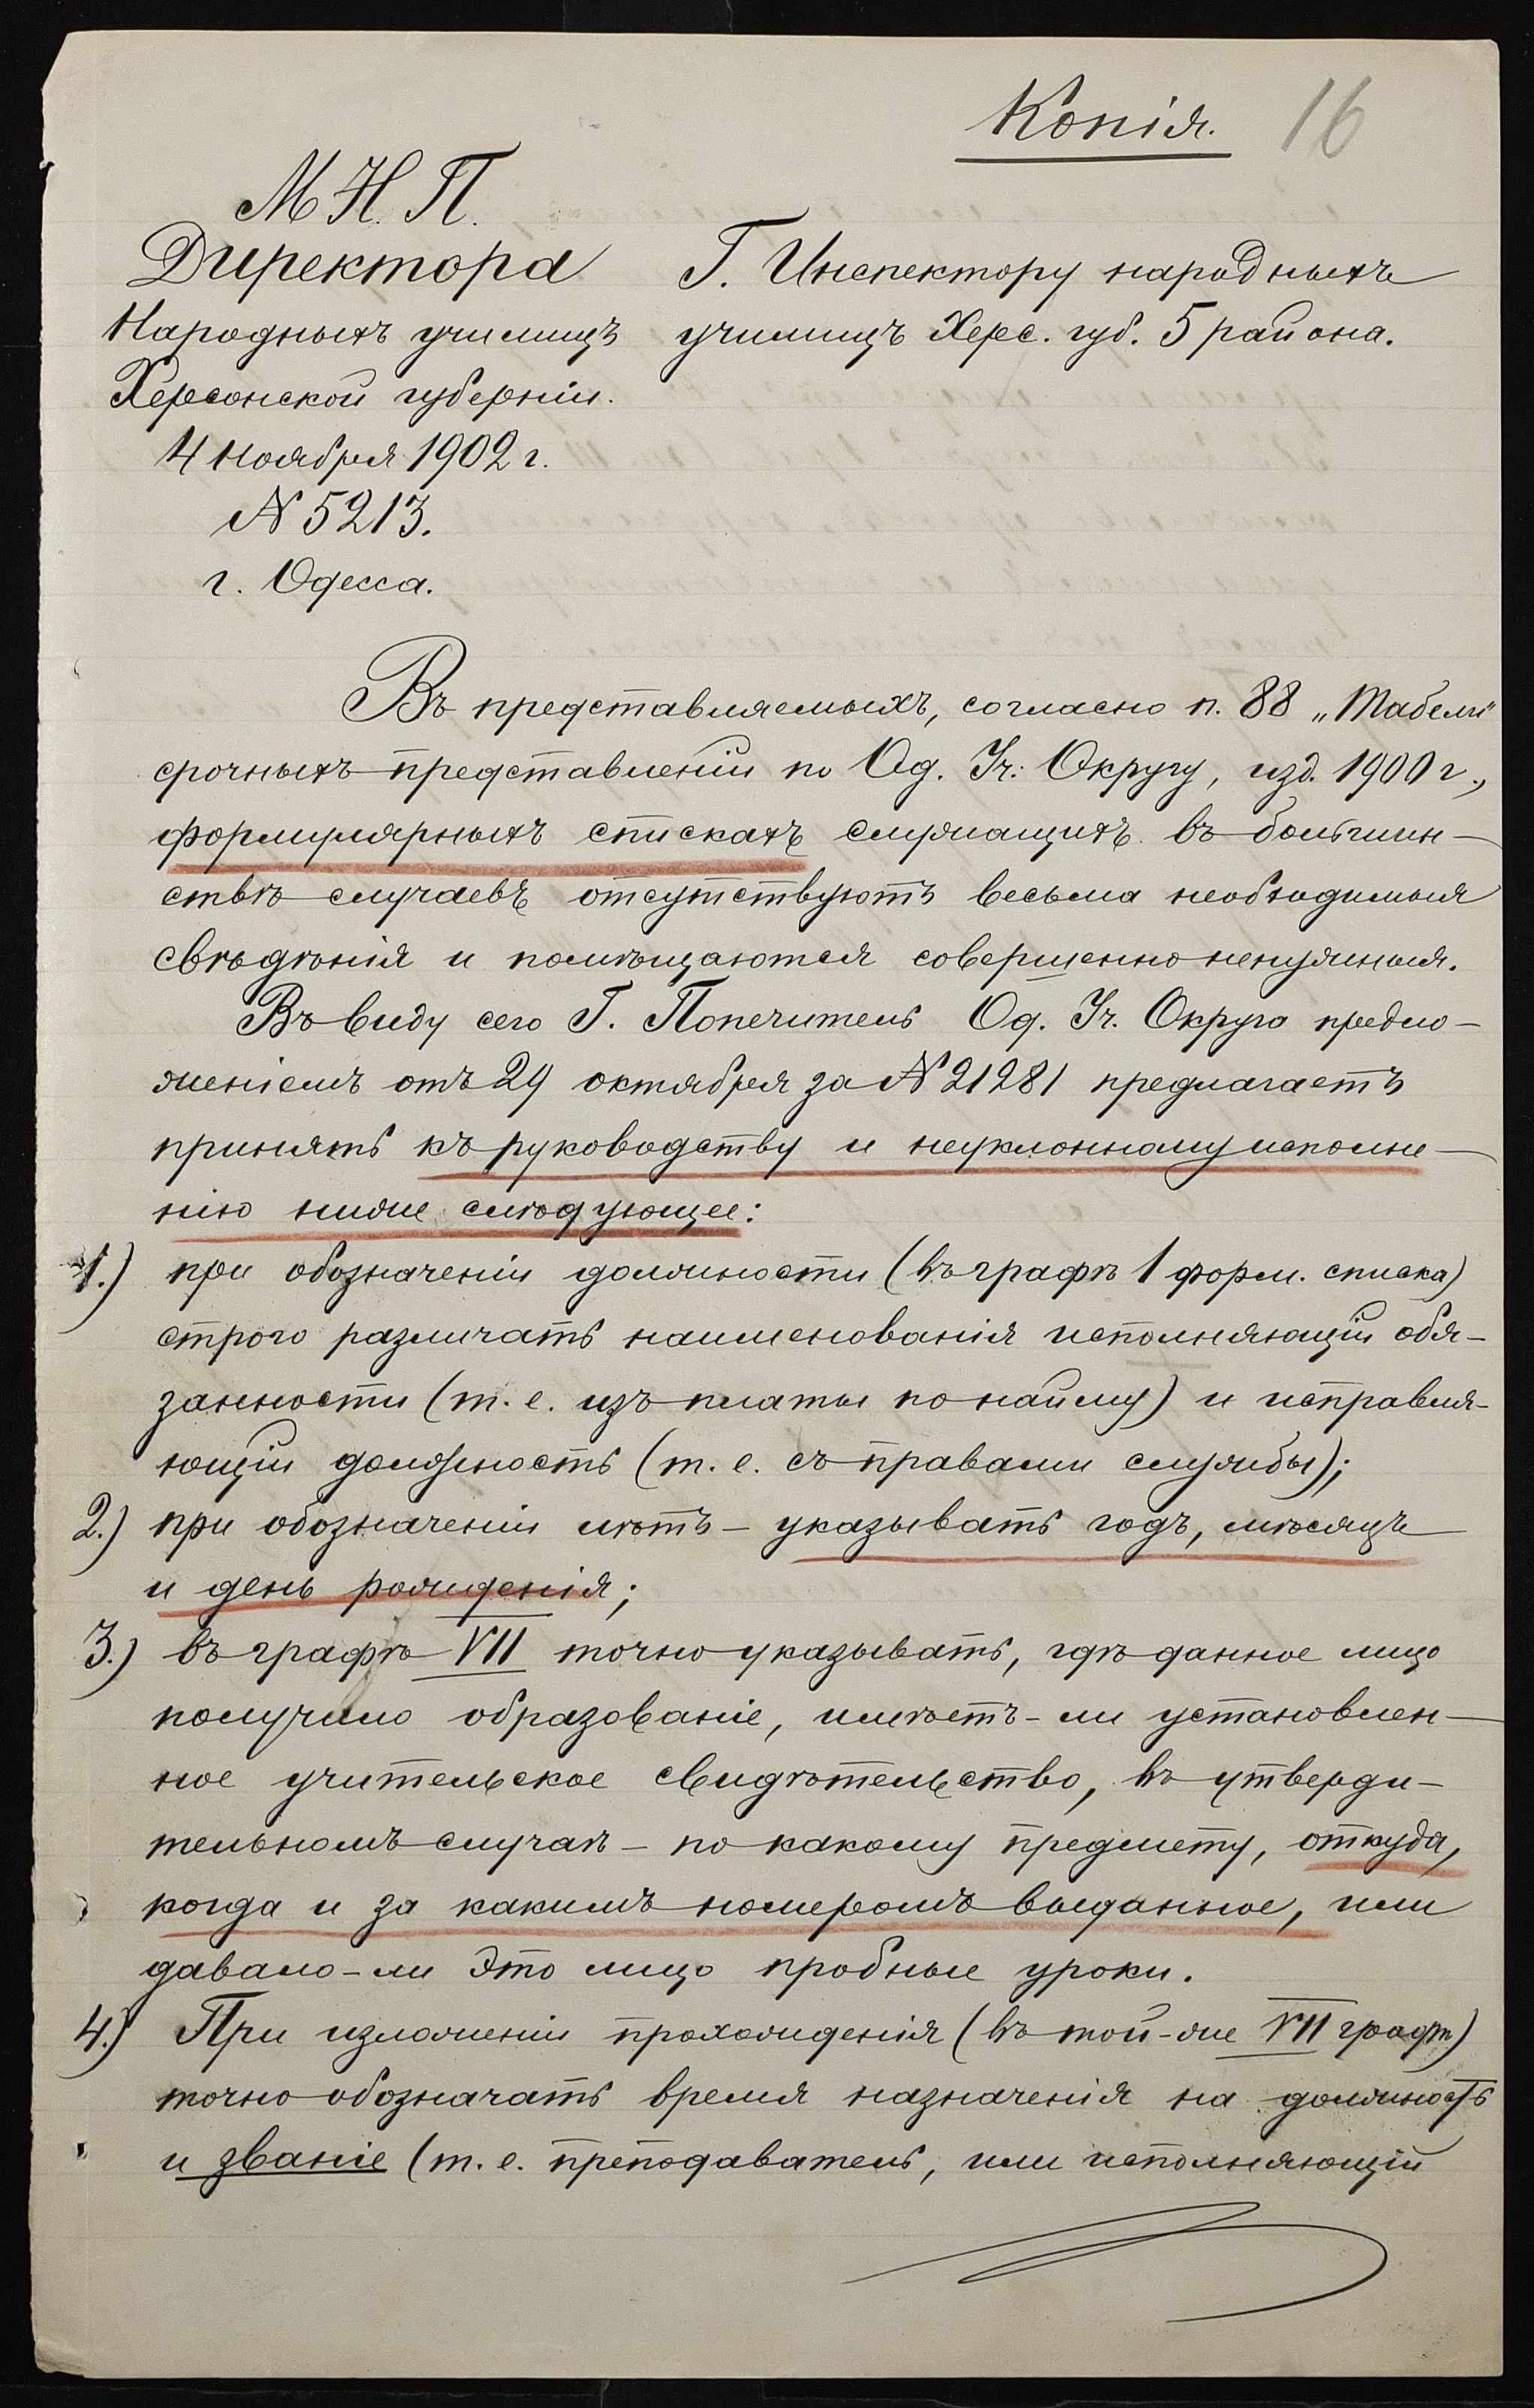 Копія. 16
М. Н. П.
Директора
Народныхъ училищъ
Херсонской губерніи.
4 ноября 1902 г.
№ 5213.
г. Одесса.
Г. Инспектору народныхъ
училищъ Херс. губ. 5 района.
Въ представляемыхъ, согласно п. 88 „Табели"
срочныхъ представленій по Од. Уч. Округу, изд. 1900 г.,
формулярныхъ спискахъ служащихъ въ большин-
ствѣ случаевъ отсутствуютъ весьма необходимыя
свѣдѣнія и помѣщаются совершенно ненужныя.
Въ виду сего Г. Попечитель Од. Уч. Округа предло-
женіемъ отъ 24 октября за № 21281 предлагаетъ
принять къ руководству и неуклонному исполне-
нію ниже слѣдующее:
1.) при обозначеніи должности (въ графѣ 1 форм. списка)
строго различать наименованія исполняющій обя-
занности (т. е. изъ платы по найму) и исправля-
ющій должность (т. е. съ правами службы);
2.) при обозначеніи лѣтъ - указывать годъ, мѣсяцъ
и день рожденія;
3.) въ графѣ VII точно указывать, гдѣ данное лицо
получило образованіе, имѣетъ-ли установлен-
ное учительское свидѣтельство, въ утверди-
тельномъ случаѣ - по какому предмету, откуда,
когда и за какимъ номеромъ выданное, или
давало-ли это лицо пробные уроки.
4.) При изложеніи прохожденія (въ той-же VII графѣ)
точно обозначать время назначенія на должность
и званіе (т. е. преподаватель, или исполняющій